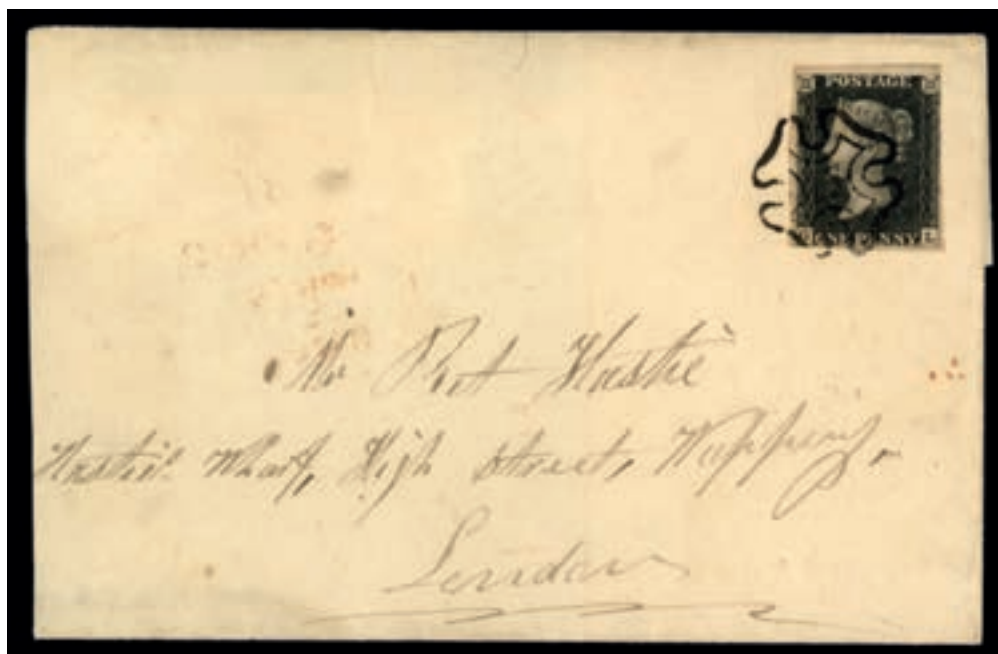 POSTAGE
ONE PENNY
Mr Robt Hastie
Hastie's Wharf, High Street, Wapping,
London